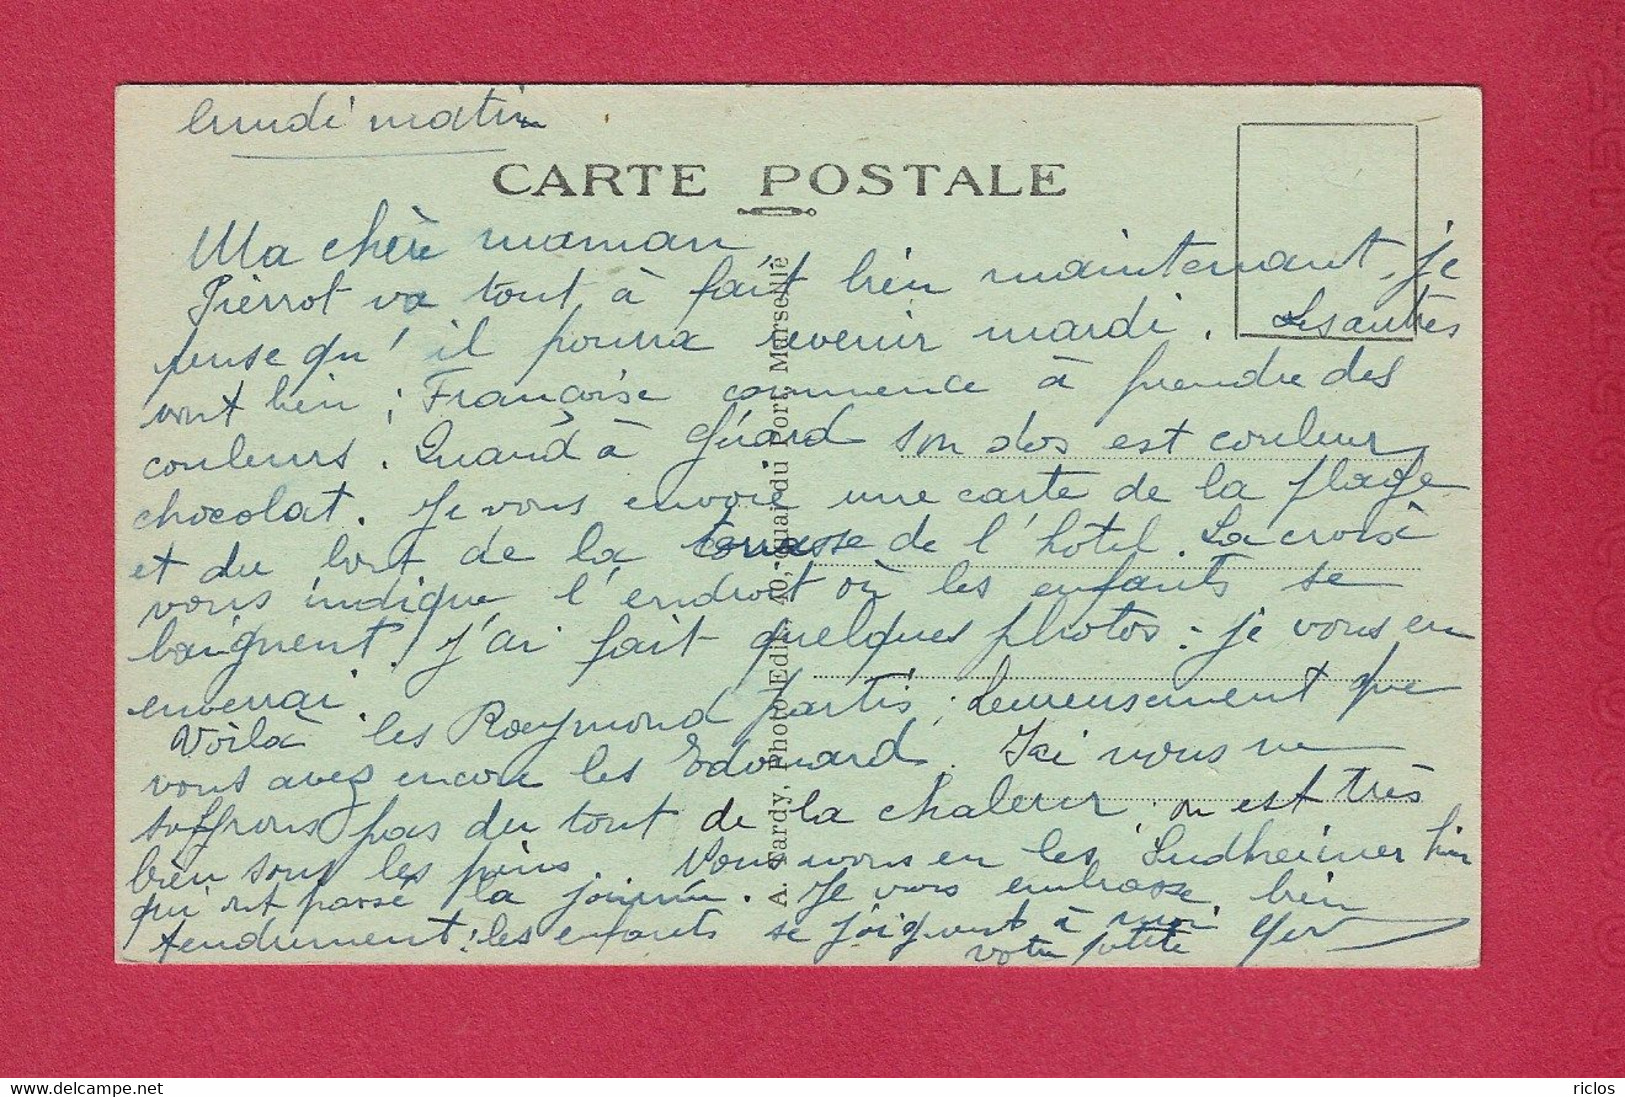 lundi matin
CARTE POSTALE
Ma chère maman
Pierrot va tout à fait bien maintenant, je
pense qu'il pourra revenir mardi. Les autres
vont bien ; Françoise commence à prendre des
couleurs. Quand à Gérard son dos est couleur
chocolat. Je vous envoie une carte de la plage
et du bort de la terrasse de l'hôtel. La croix
vous indique l'endroit où les enfants se
baignent. J'ai fait quelques photos : je vous en
enverrai.
Voilà les Raymond partis ; heureusement que
vous avez encore les Edouard. Ici nous ne
souffrons pas du tout de la chaleur, on est très
bien sous les pins. Nous avons eu les Sudheimer hier
qui ont passé la journée. Je vous embrasse bien
tendrement ; les enfants se joignent à moi
votre petite
A. Tardy, Photo Edit. 40, Quai du Port, Marseille
delcampe.net
riclos